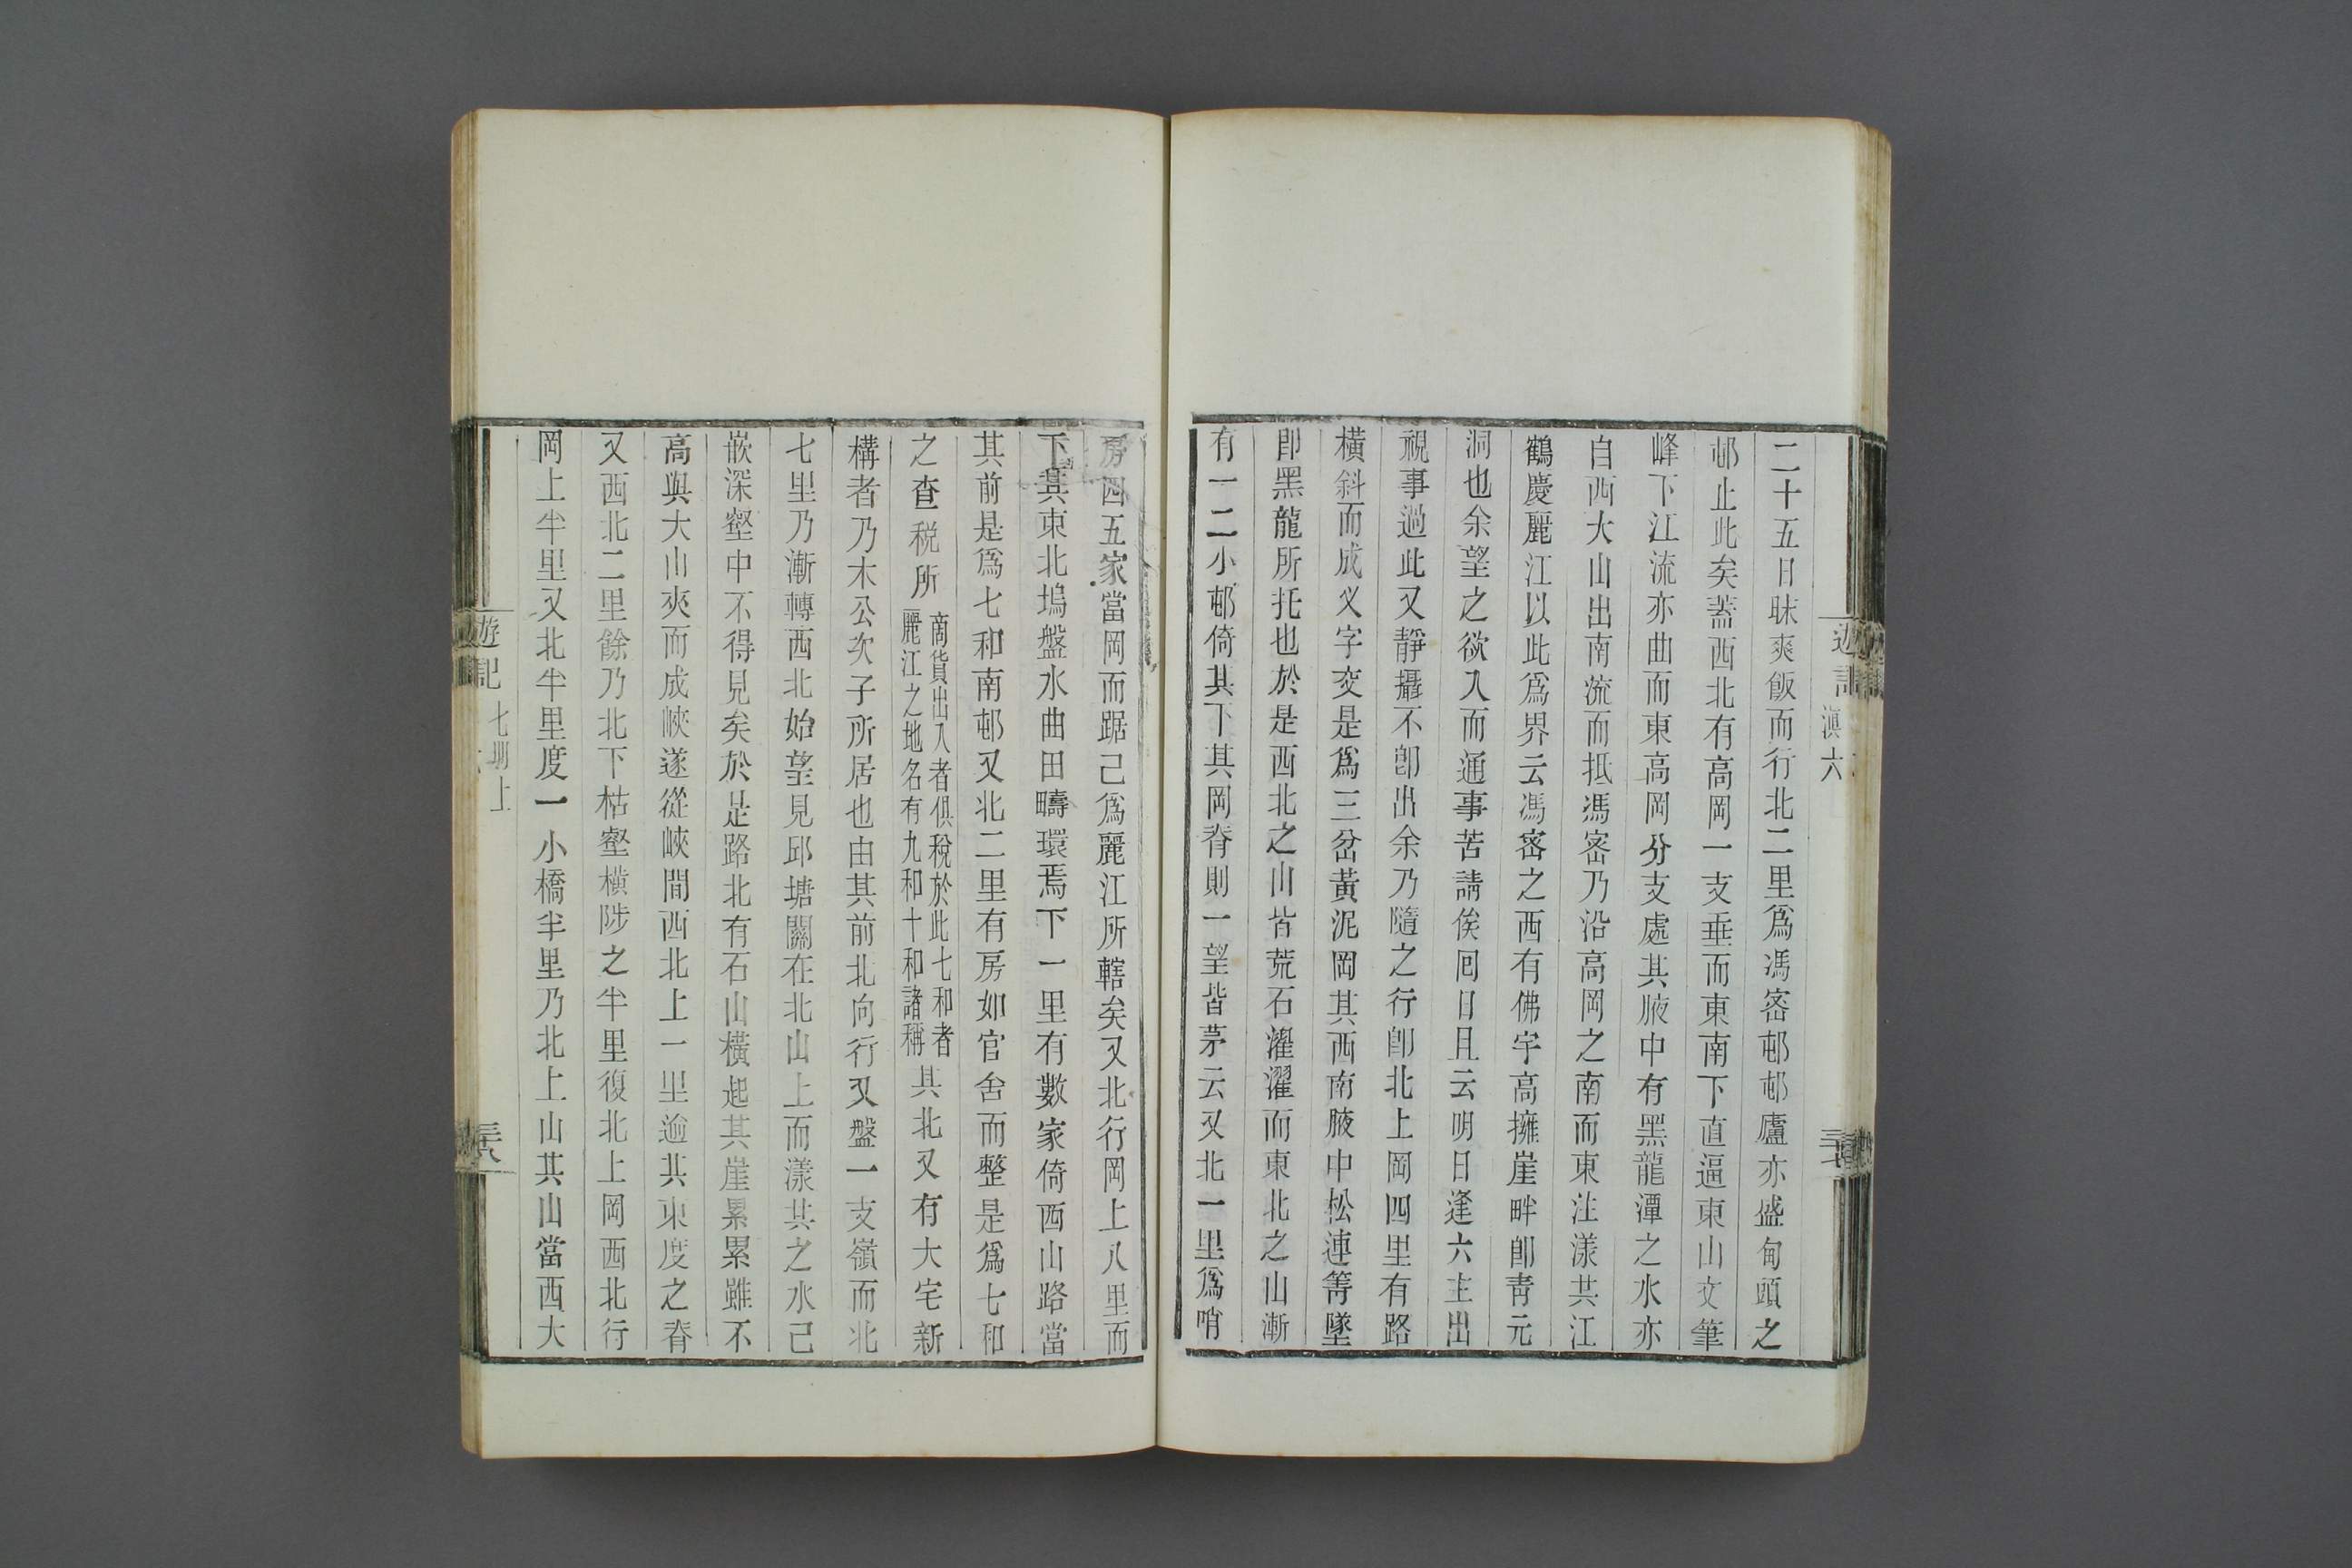 二十五日昧爽飯而行北二里爲馮密邨邨廬亦盛甸頭之
邨止此矣蓋西北有高岡一支垂而東南下直逼東山文筆
峰下江流亦曲而東高岡分支處其腋中有黑龍潭之水亦
自西大山出南流而抵馮密乃沿高岡之南而東注漾共江
鶴慶麗江以此爲界云馮密之西有佛宇高擁崖畔卽靑元
洞也余望之欲入而通事苦請俟回日且云明日逢六主出
視事過此又靜攝不卽出余乃隨之行卽北上岡四里有路
橫斜而成乂字交是爲三岔黃泥岡其西南腋中松連箐墜
卽黑龍所托也於是西北之山皆荒石濯濯而東北之山漸
有一二小邨倚其下其岡脊則一望皆茅云又北一里爲哨
房四五家當岡而踞已爲麗江所轄矣又北行岡上八里而
下其東北塢盤水曲田疇環焉下一里有數家倚西山路當
其前是爲七和南邨又北二里有房如官舍而整是爲七和
之查稅所商貨出入者俱稅於此七和者麗江之地名有九和十和諸稱其北又有大宅新
構者乃木公次子所居也由其前北向行又盤一支嶺而北
七里乃漸轉西北始望見邱塘關在北山上而漾共之水已
嵌深壑中不得見矣於是路北有石山橫起其崖累累雖不
高與大山夾而成峽遂從峽間西北上一里逾其東度之脊
又西北二里餘乃北下枯壑橫陟之半里復北上岡西北行
岡上半里又北半里度一小橋半里乃北上山其山當西大
遊記 滇六
遊記 七 上 三十八